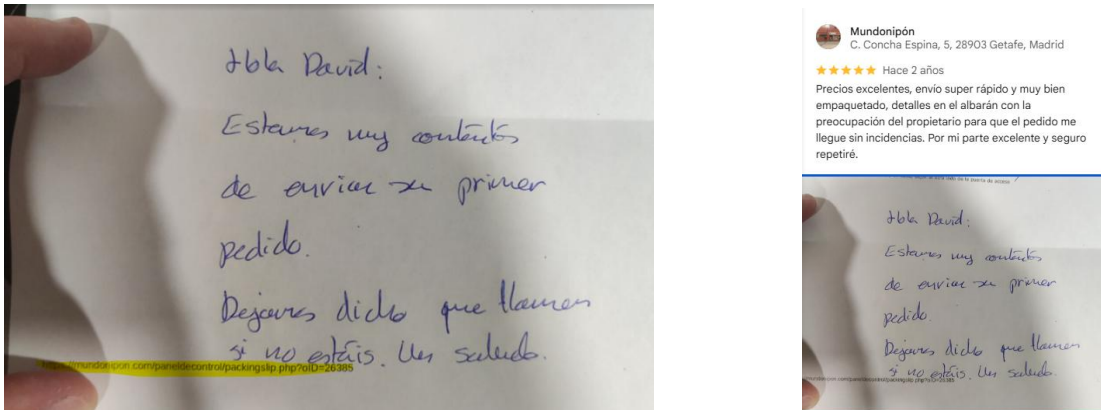 Hola David:
Estamos muy contentos
de enviar su primer
pedido.
Dejamos dicho que llamen
si no estáis. Un saludo.
https://mundonipon.com/paneldecontrol/packingslip.php?oID=26385
Mundonipón
C. Concha Espina, 5, 28903 Getafe, Madrid
Hace 2 años
Precios excelentes, envío super rápido y muy bien
empaquetado, detalles en el albarán con la
preocupación del propietario para que el pedido me
llegue sin incidencias. Por mi parte excelente y seguro
repetiré.
Hola David:
Estamos muy contentos
de enviar su primer
pedido.
Dejamos dicho que llamen
si no estáis. Un saludo.
mundonipon.com/paneldecontrol/packingslip.php?oID=26385